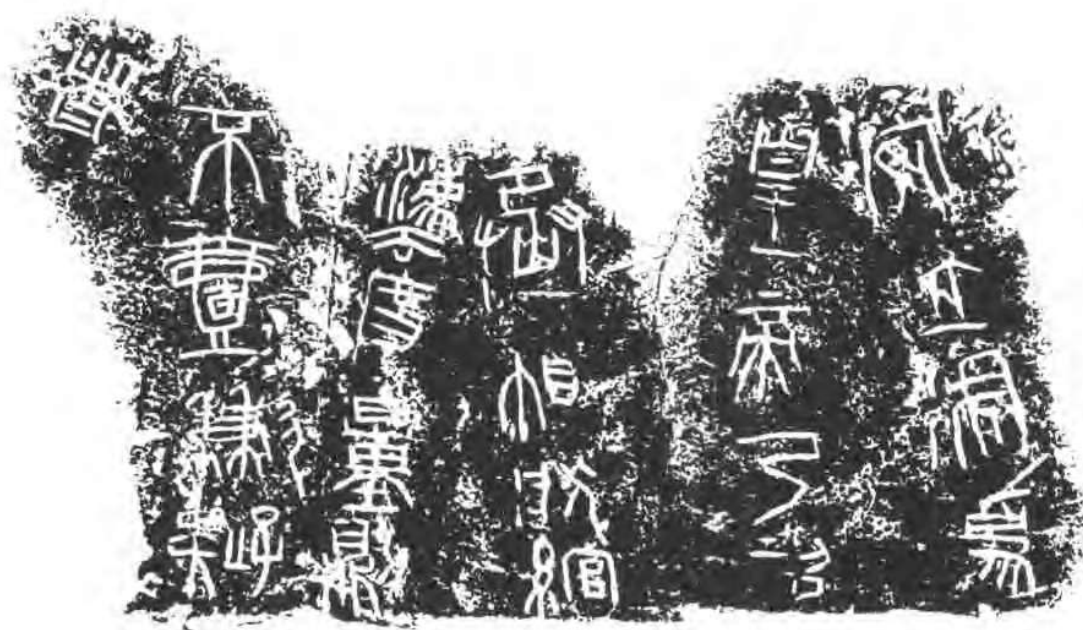 安立號為
皇帝乃詔
丞相狀綰
灋度量則
不壹歉疑
者